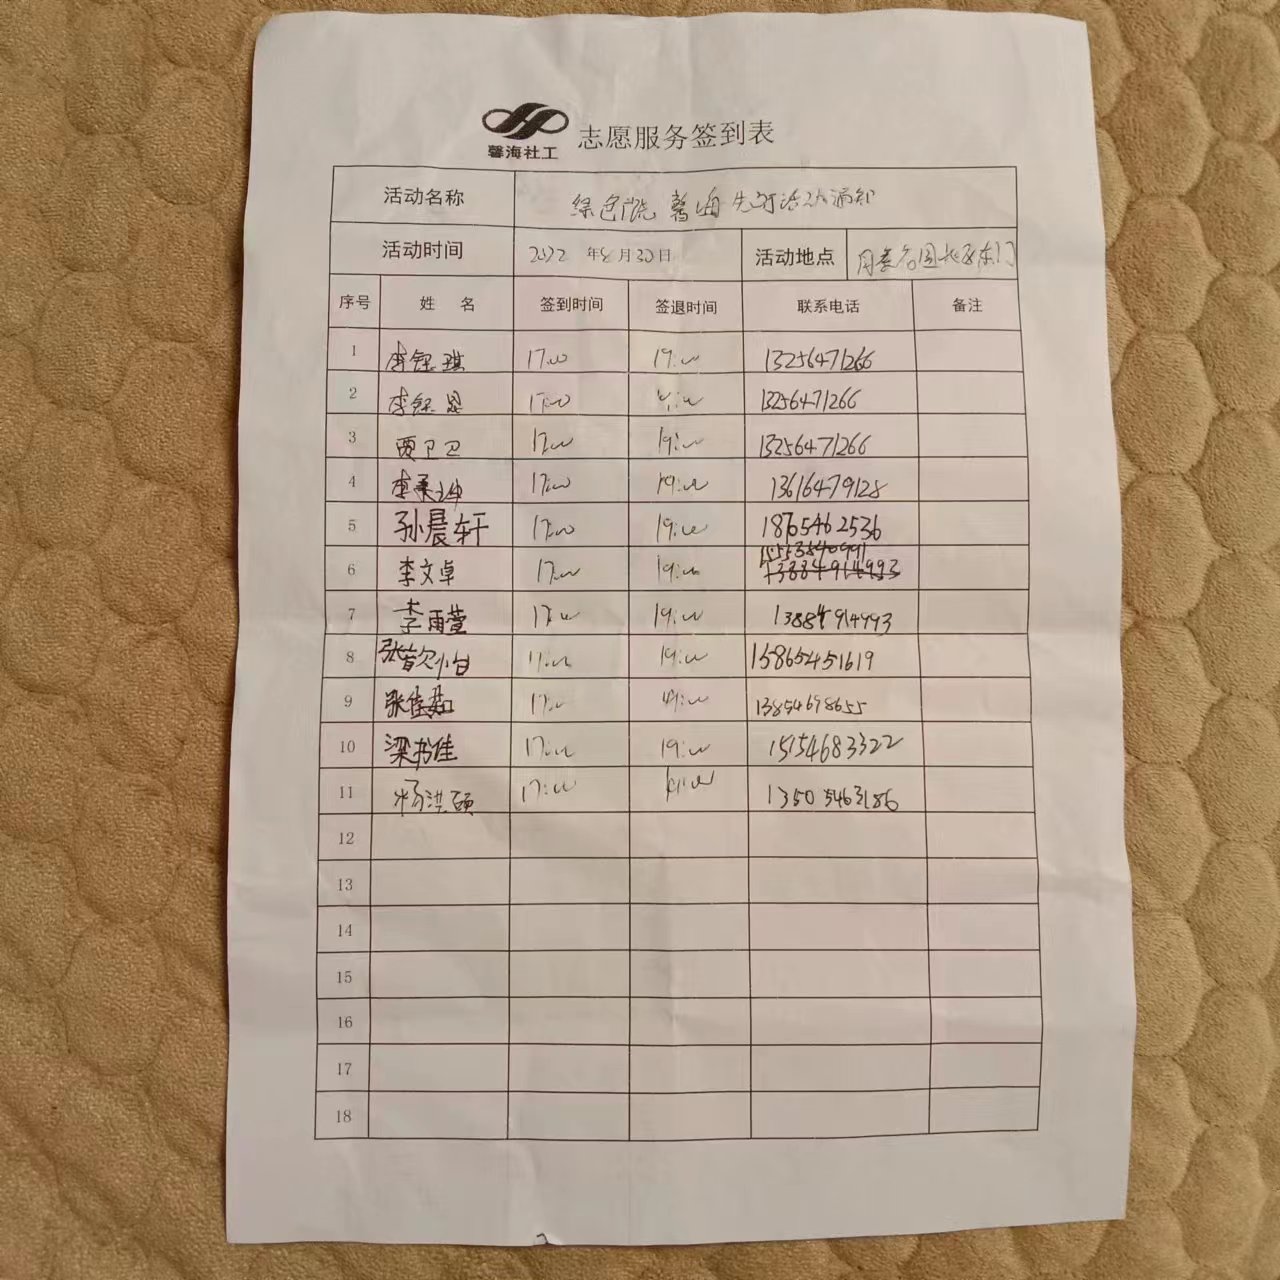 馨海社工 志愿服务签到表
活动名称 馨海先行活动通知
活动时间 2022 年8月30日 活动地点
序号 姓 名 签到时间 签退时间 联系电话 备注
1 李钰琪 17:00 19:00 13256471266
2 李钰 17:00 19:00 13256471266
3 贾卫卫 17:00 19:00 13256471266
4 17:00 19:00 13616479128
5 孙晨轩 17:00 19:00 18765462536
15553840991
6 李文卓 17:00 19:00 13884914993
7 李雨萱 17:00 19:00 13884914993
8 张歆怡 17:00 19:00 15865451619
9 张佳茹 17:00 19:00 13854698655
10 梁书佳 17:00 19:00 15154683322
11 杨洪颐 17:00 19:00 13505463186
12
13
14
15
16
17
18